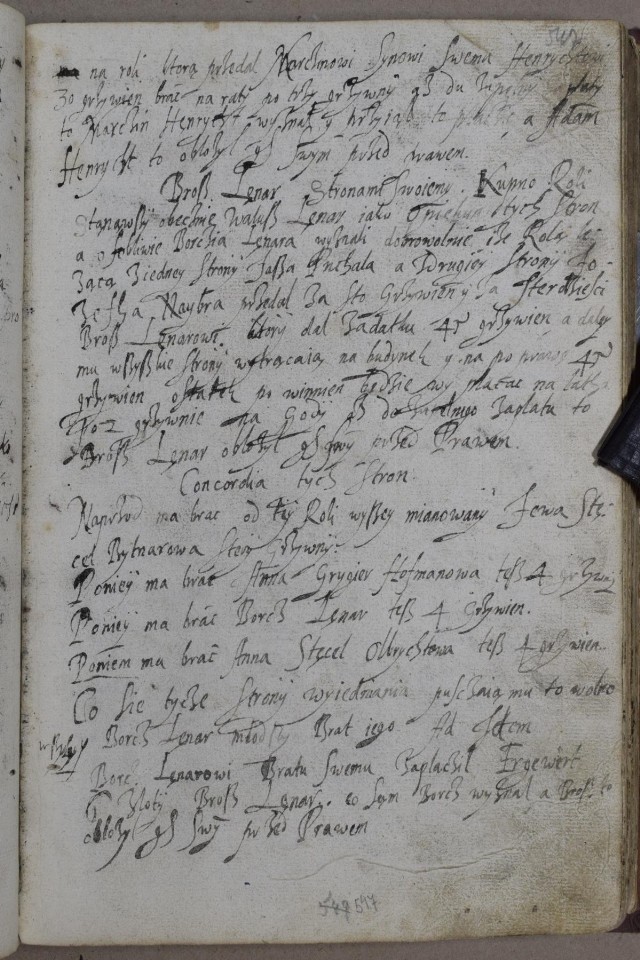 na roli ktorą przedal Marczinowi Synowi Swemu Henrychtowi
30 grzywien brac na raty po trzy grzywny asz du zupelny zaplaty
to Marczin Henrycht wyznal y przyiął to placic a Adam
Henrycht to oblozyl gs Swym przed prawem.
Brosz Lenar Stronami Swoiemi. Kupno Roli
Stanąwszy obecznie Walusz Lenar iako Opiekun tych Stron
a osobliwie Borchia Lenara wyznali dobrowolnie isze Rolą le-
Zącą Ziedney Strony Jasia Puchala a Zdrugiey Strony Jo-
Zefha Naybra przedal Za Sto Grzywien y Za Sterdziesci
Brosz Lenarowi. ktory dal Zadatku 45 grzywien a daley
mu wszystkie strony wytrącaią na budynek y na po prawe 45
grzywien ostatek po winnien będzie wy placac na lata
Po 2 grzywnie na Gody asz do zupelnego Zaplatu to
Brosz Lenar oblozyl gs Swy przed Prawem.
Concordia tych Stron.
Naprzod ma brac od tey Roli wyszey mianowany Jewa Stę-
cel Bytnarowa Stery Grzywny:
Poniey ma brac Anna Grygier Hofmanowa tesz 4 grzywny
Poniey ma brac Borch Lenar tesz 4 Grzywien.
Poniem ma brac Anna Stęcel Olbrychtowa tesz 4 grzywien.
Co sie tycze Strony wyiednania puschaią mu to wolno
Borch Lenar młodszy Brat iego Ad
Borch Lenarowi Bratu Swemu Zaplachil Ergewert
Zloty Brosz Lenar. co Sam Borch wyznal a Brosz to
oblozyl gs Swy przed Prawem
547